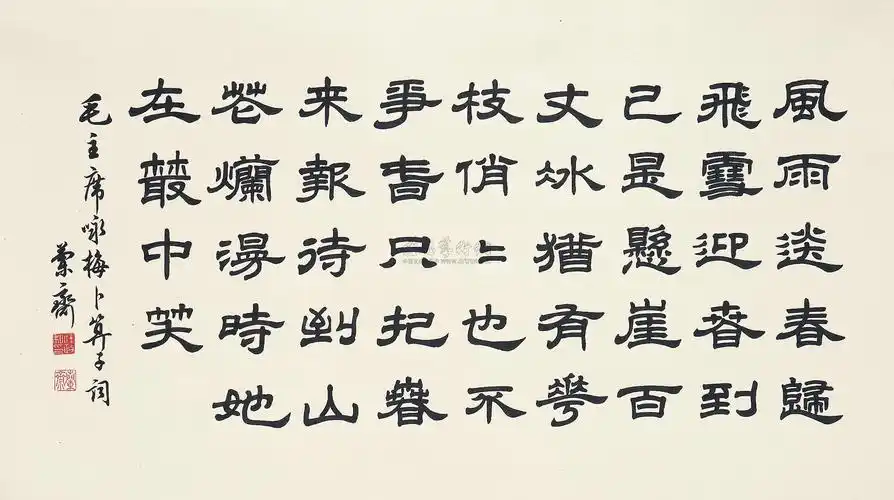 風雨送春歸
飛雪迎春到
已是懸崖百
丈冰猶有花
枝俏〻也不
爭春只把春
来報待到山
花爛漫時她
在叢中笑
毛主席咏梅卜算子詞
齋